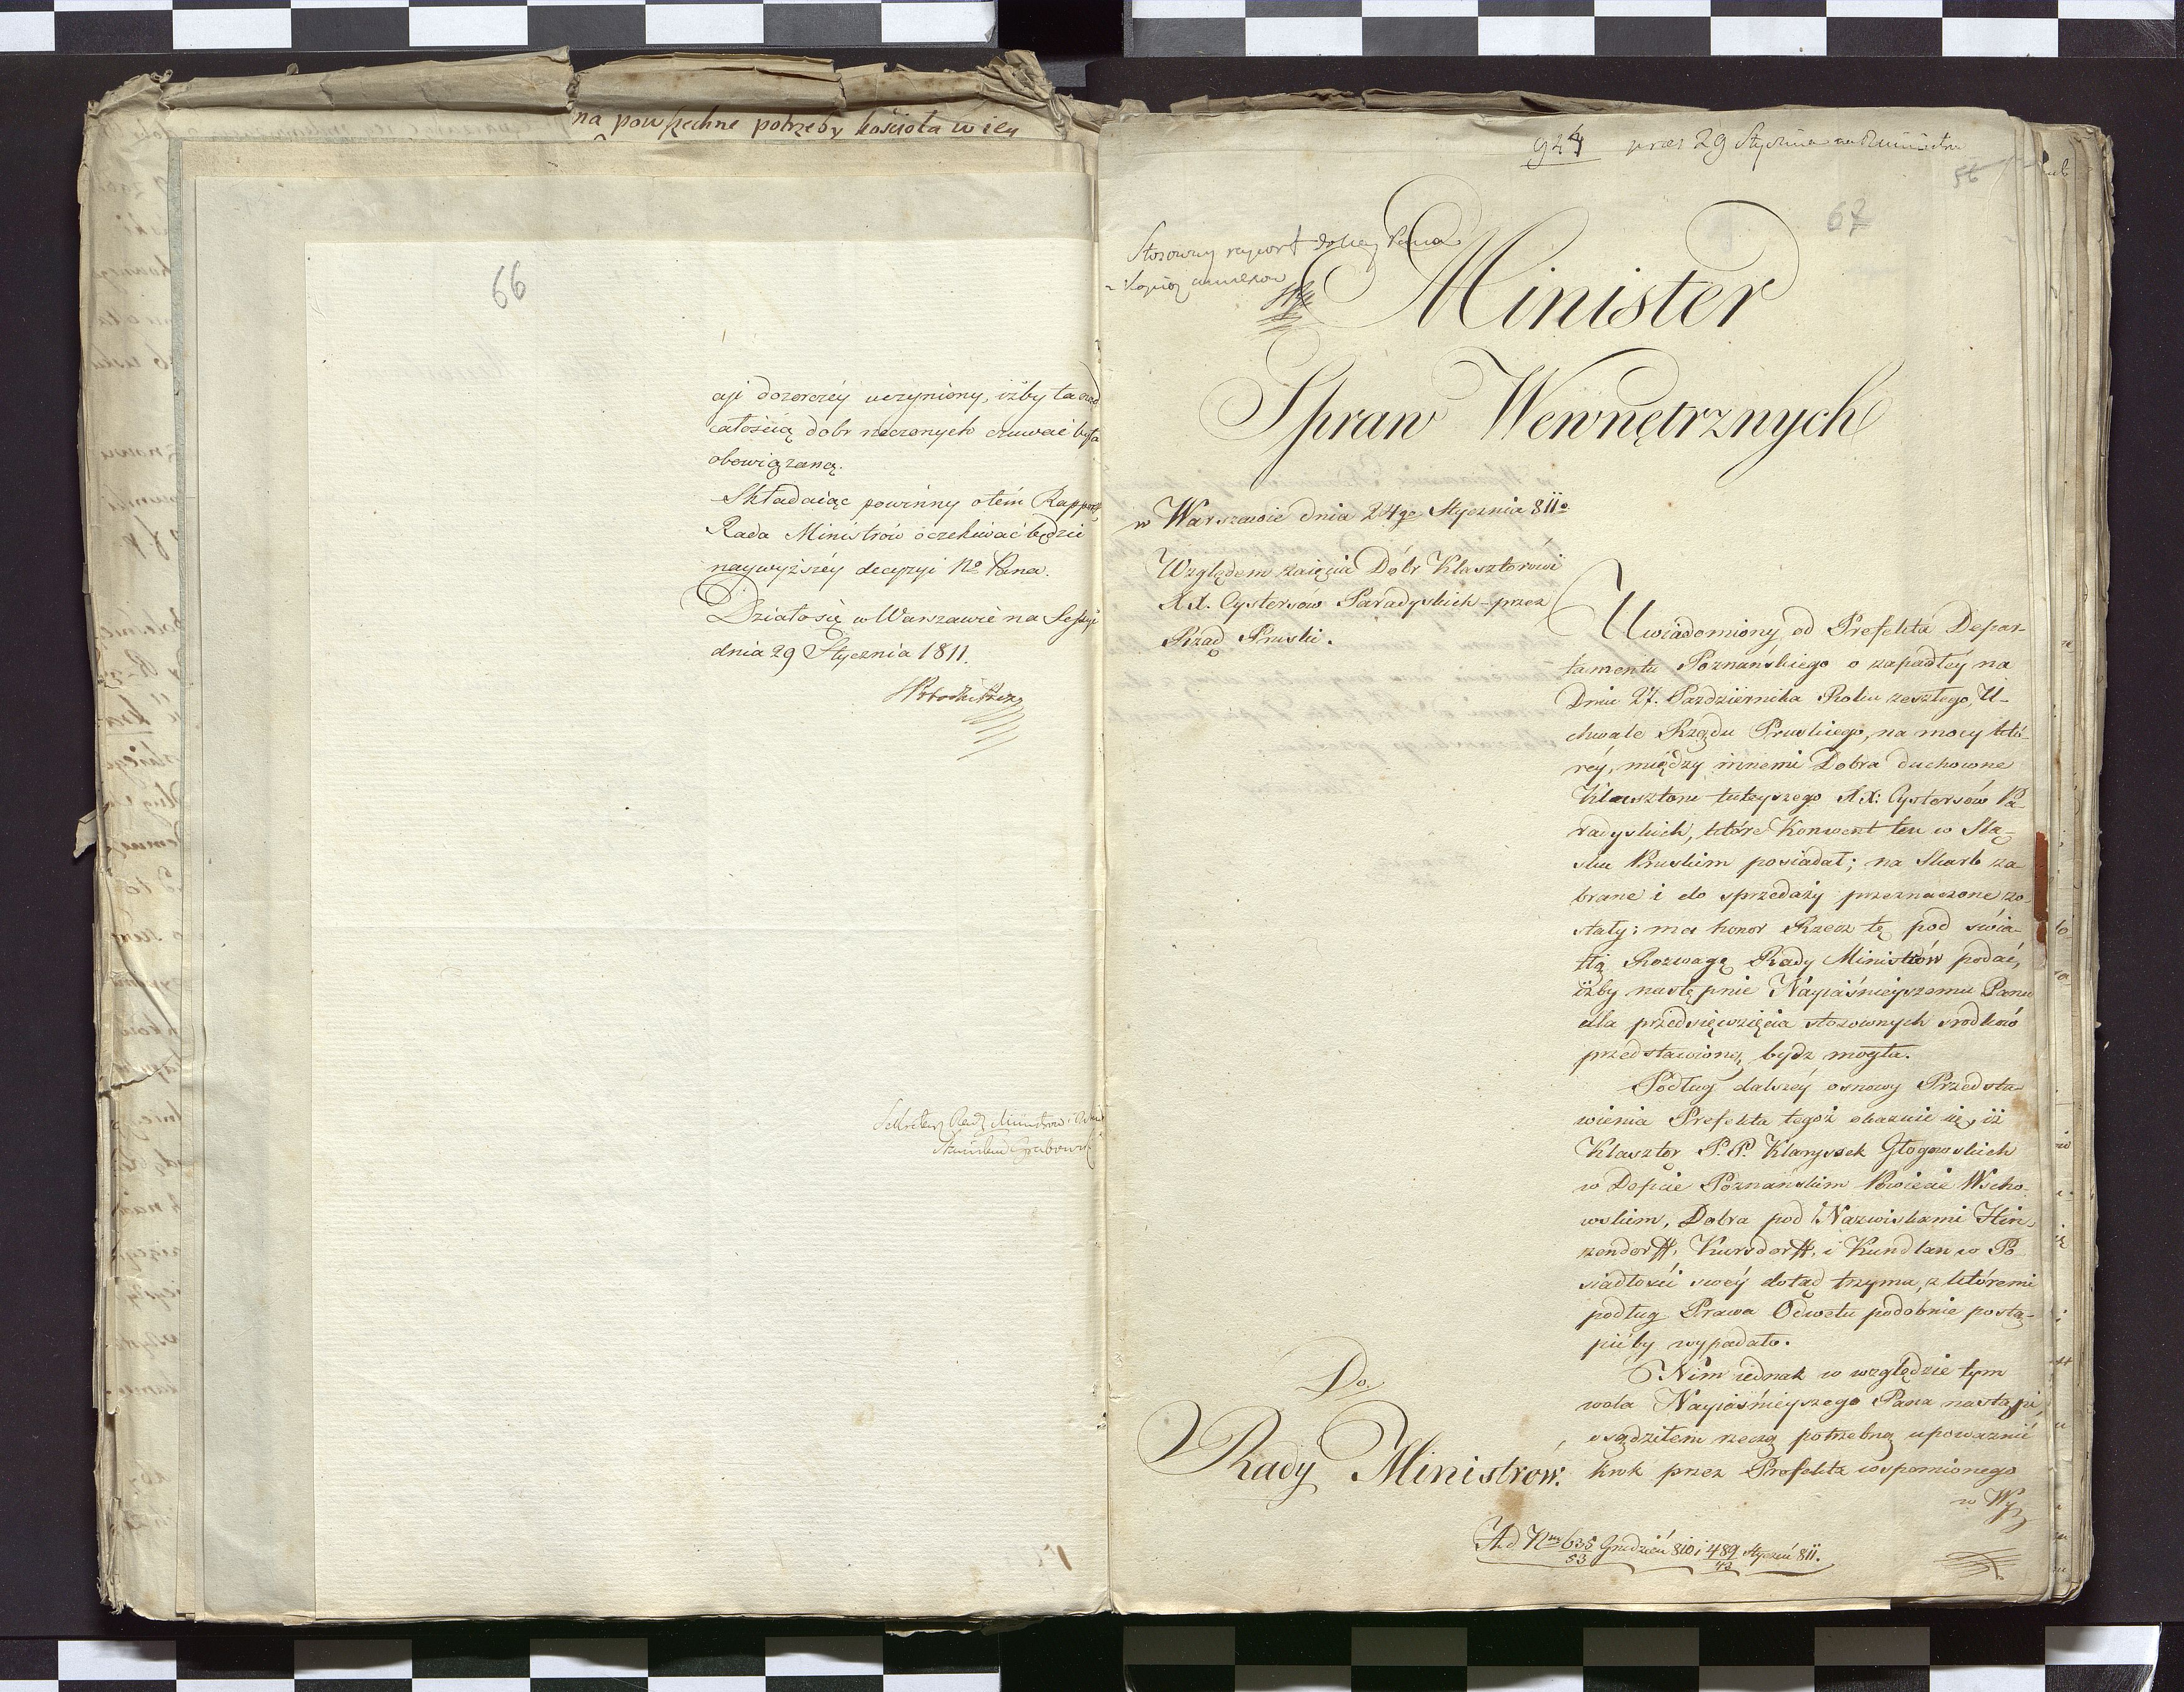 na powszechne potrzeby kościoła w icy
66
cyi dozorczéy uczyniony, iżby ta nad
całością dobr rzeczonych czuwać była
obowiązaną.
Składaiąc powinny o tém Rapport,
Rada Ministrów oczekiwać będzie
naywyższéy decyzyi No Pana.
Działo się w Warszawie na Sessyi
dnia 29 Stycznia 1811.
Sekretarz Rady Ministrow
Stanisław Grabowski
924 praes 29 Stycznia
56
67
Stosowny raport do Ney Pana
z kopią
Minister
Spraw Wewnętrznych
w Warszawie dnia 24go Stycznia 811o
Względem zaięcia Dóbr Klasztorowi
XX. Cystersów Paradyskich przez
Rząd Pruski.
Uwiadomiony od Prefekta Depar-
tamentu Poznańskiego o zapadłéy na
Dniu 27. Pazdziernika Roku zeszłego, U-
chwale Rządu Pruskiego, na mocy któ-
réy, między innemi Dobra duchowne
Klasztoru tuteyszego XX: Cystersów Pa-
radyskich, które Konwent ten w Slą-
sku Pruskim posiadał; na Skarb za-
brane i do sprzedaży przeznaczone zo-
stały; ma honor Rzecz tę pod świa-
tłą Rozwagę Rady Ministrów podać,
iżby następnie Nayiaśnieyszemu Panu
dla przedsięwzięcia stosownych srodków
przedstawioną bydz mogła.
Podług dalszéy osnowy Przedsta-
wienia Prefekta tegoż okazuie się, iż
Klasztor P.P. Klarysek Głogowskich
w Depcie Poznanskim Powiecie Wscho-
wskim, Dobra pod Nazwiskami Hin-
zendorff, Kursdorff, i Kundlan w Po-
siadłości swéy dotąd trzyma, z któremi
podług Prawa Odwetu podobnie postą-
pićby wypadało.
Nim iednak w względzie tym
wola Nayiaśnieyszego Pana nastąpi,
osądziłem rzeczą potrzebną upoważnić
krok przez Prefekta wspomionego
w Wy
Do
Rady Ministrów.
Ad Num 635/53 Grudzień 810 i 489/42 Styczeń 811.